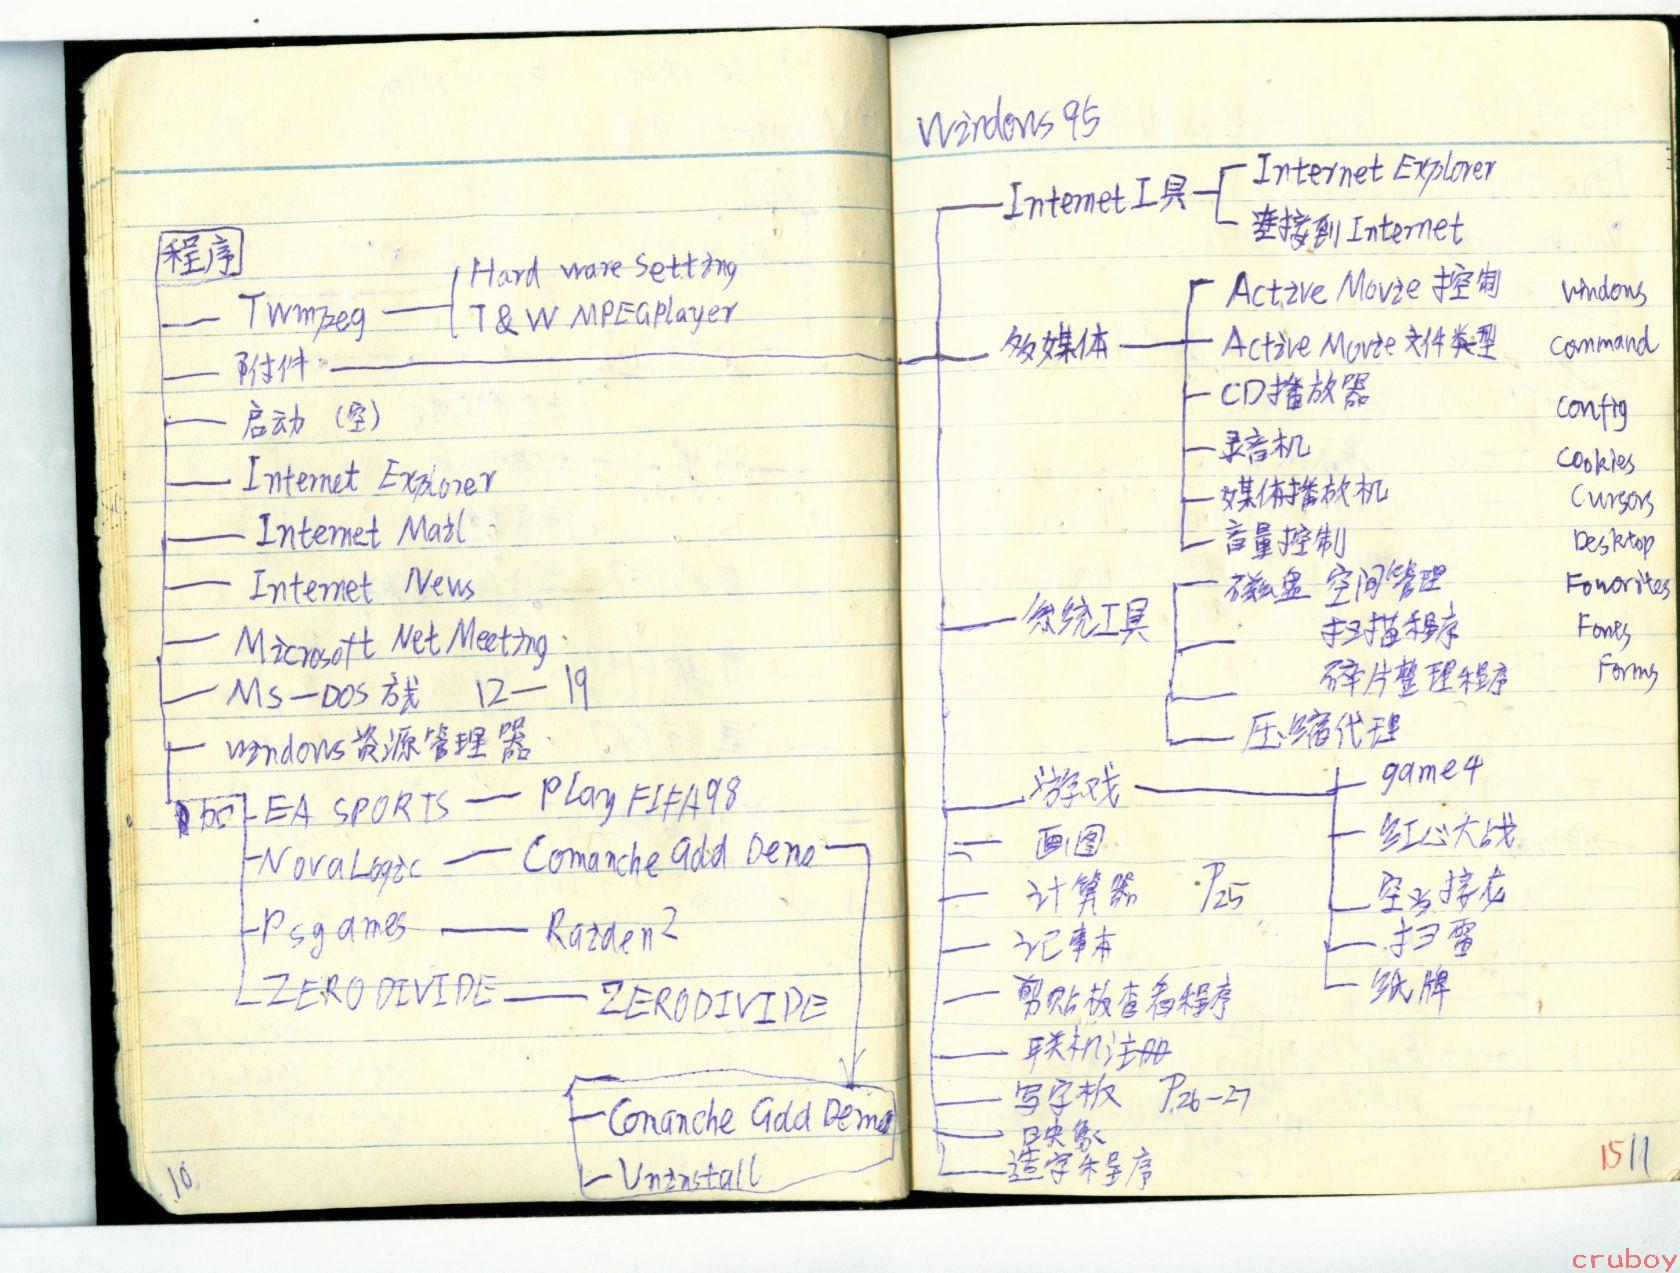 程序
Twmpeg
Hard ware Setting
T&W MPEGPlayer
附件
启动 (空)
Internet Explorer
Internet Mail
Internet News
Microsoft Net Meeting
Ms-DOS方式 12-19
windows资源管理器
EA SPORTS — Play FIFA98
NovaLogic — Comanche Gold Demo
Psgames — Raiden 2
ZERO DIVIDE — ZERO DIVIDE
Comanche Gold Demo
Uninstall
10
Windows 95
Internet工具
Internet Explorer
连接到Internet
多媒体
Active Movie 控制
Active Movie 文件类型
CD播放器
录音机
媒体播放机
音量控制
系统工具
磁盘 空间管理
扫描程序
碎片整理程序
压缩代理
游戏
game4
红心大战
空当接龙
扫雷
纸牌
画图
计算器 P25
记事本
剪贴板查看程序
联机注册
写字板 P26-27
映象
造字程序
windows
command
config
cookies
Cursors
Desktop
Favorites
Forms
15 11
cruboy